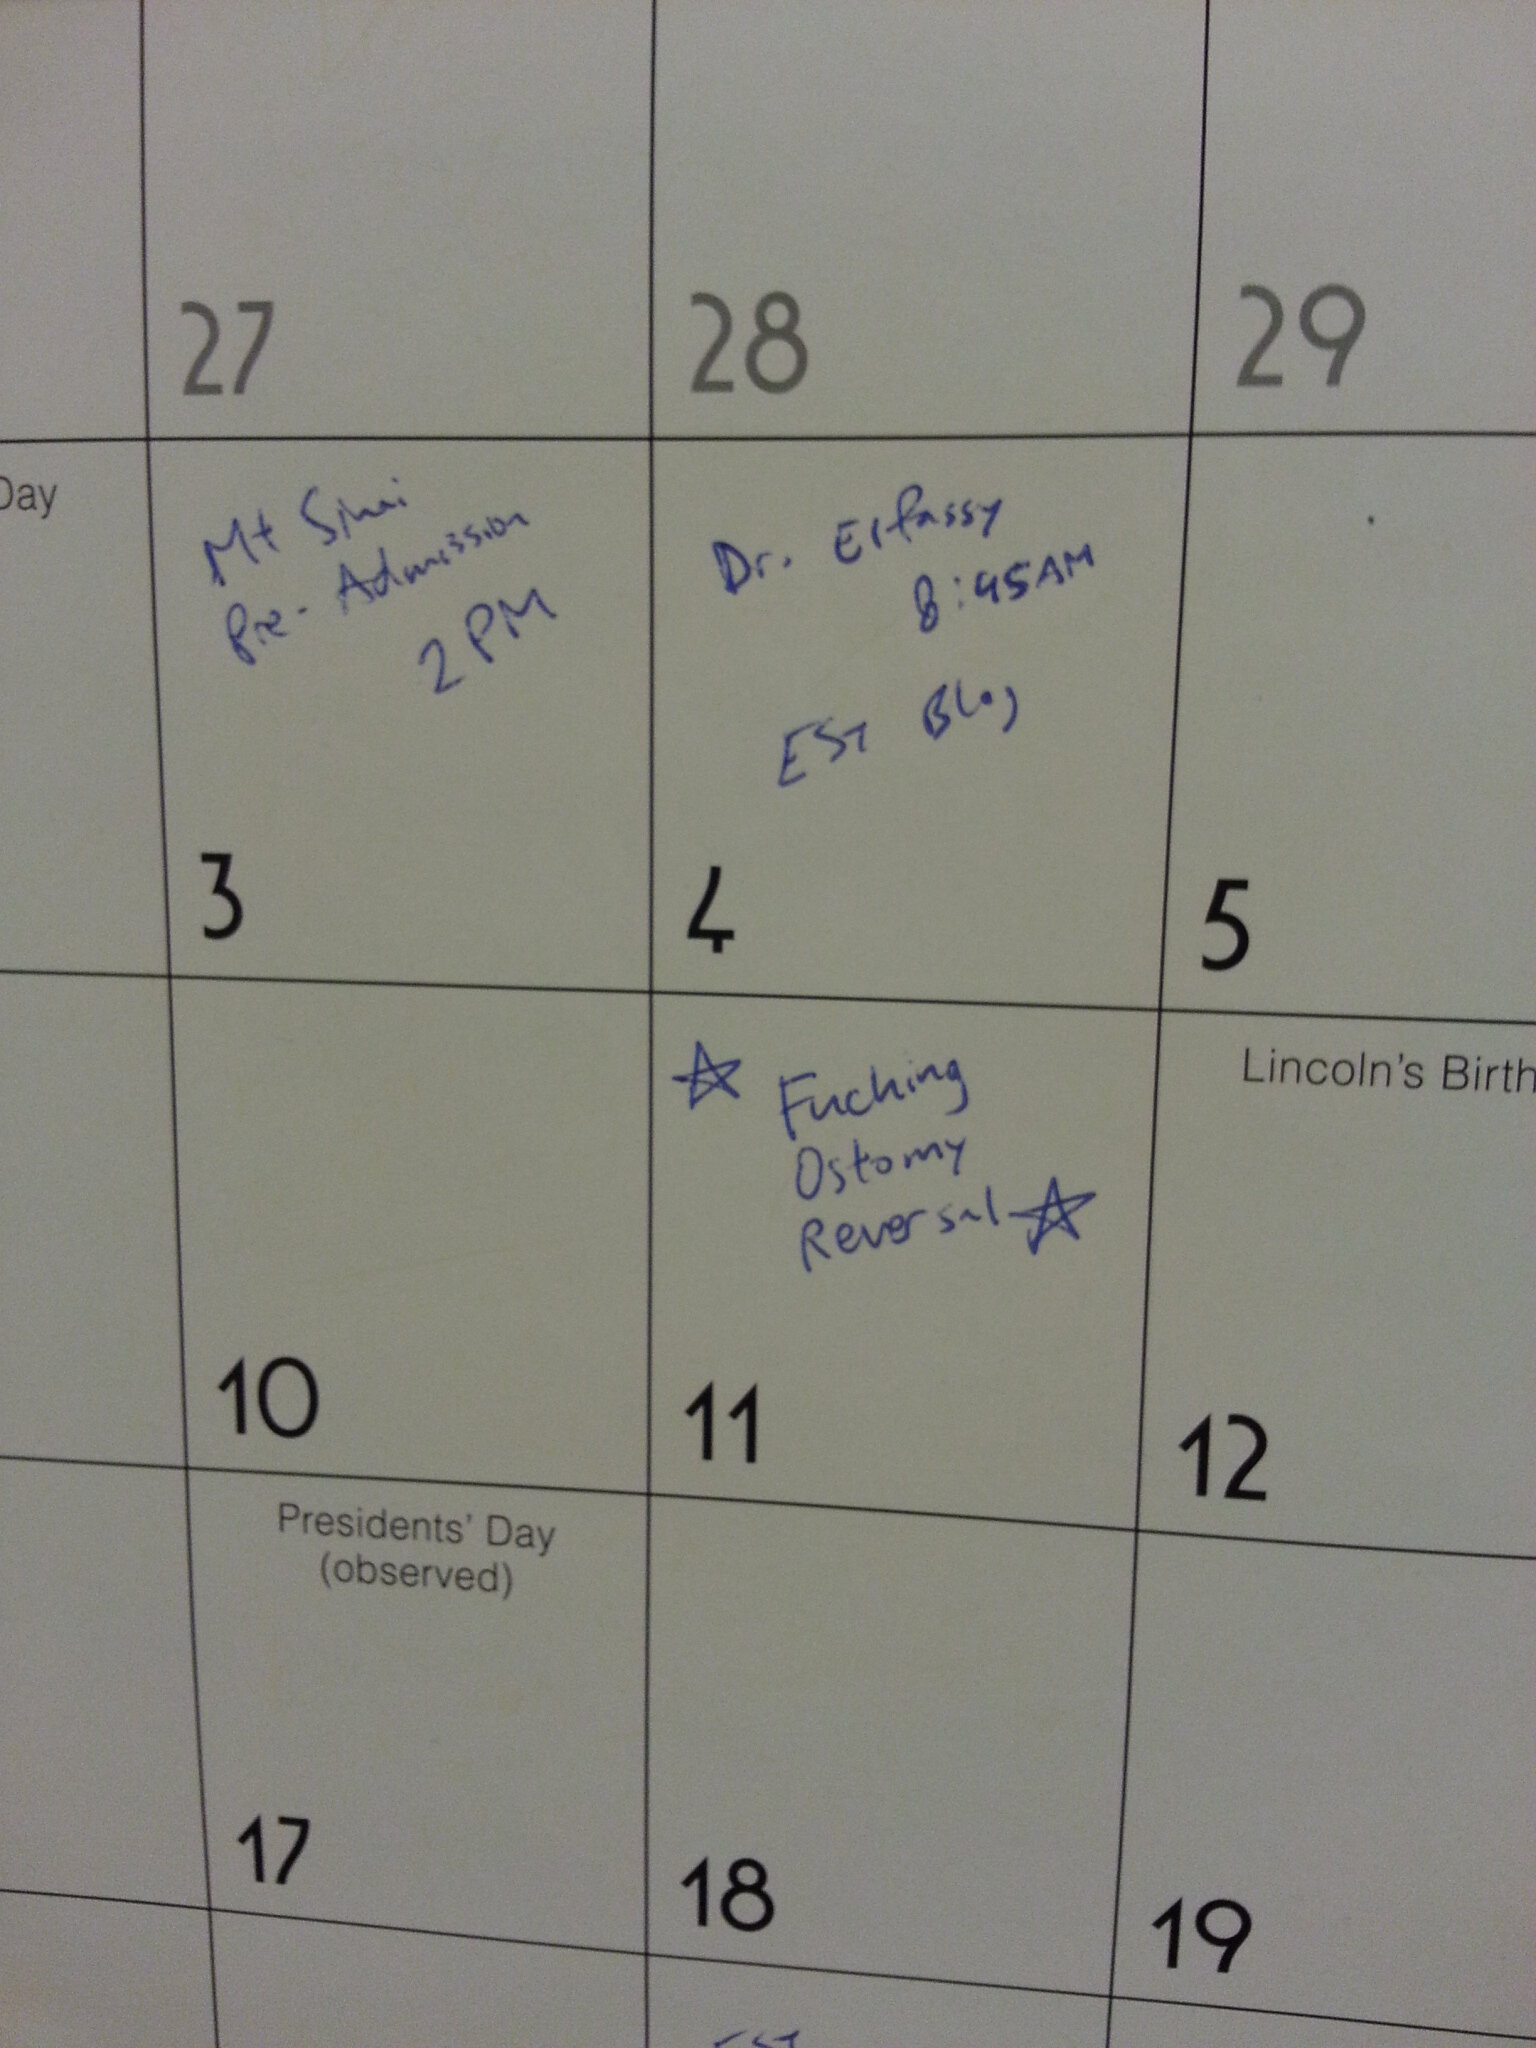 27
28
29
Day
Mt Sinai
Pre-Admission
2 PM
3
Dr. Erfassy
8:45AM
EST Blog
4
5
10
☆ Fucking
Ostomy
Reversal ☆
11
Lincoln's Birth
12
Presidents' Day
(observed)
17
18
19
EST